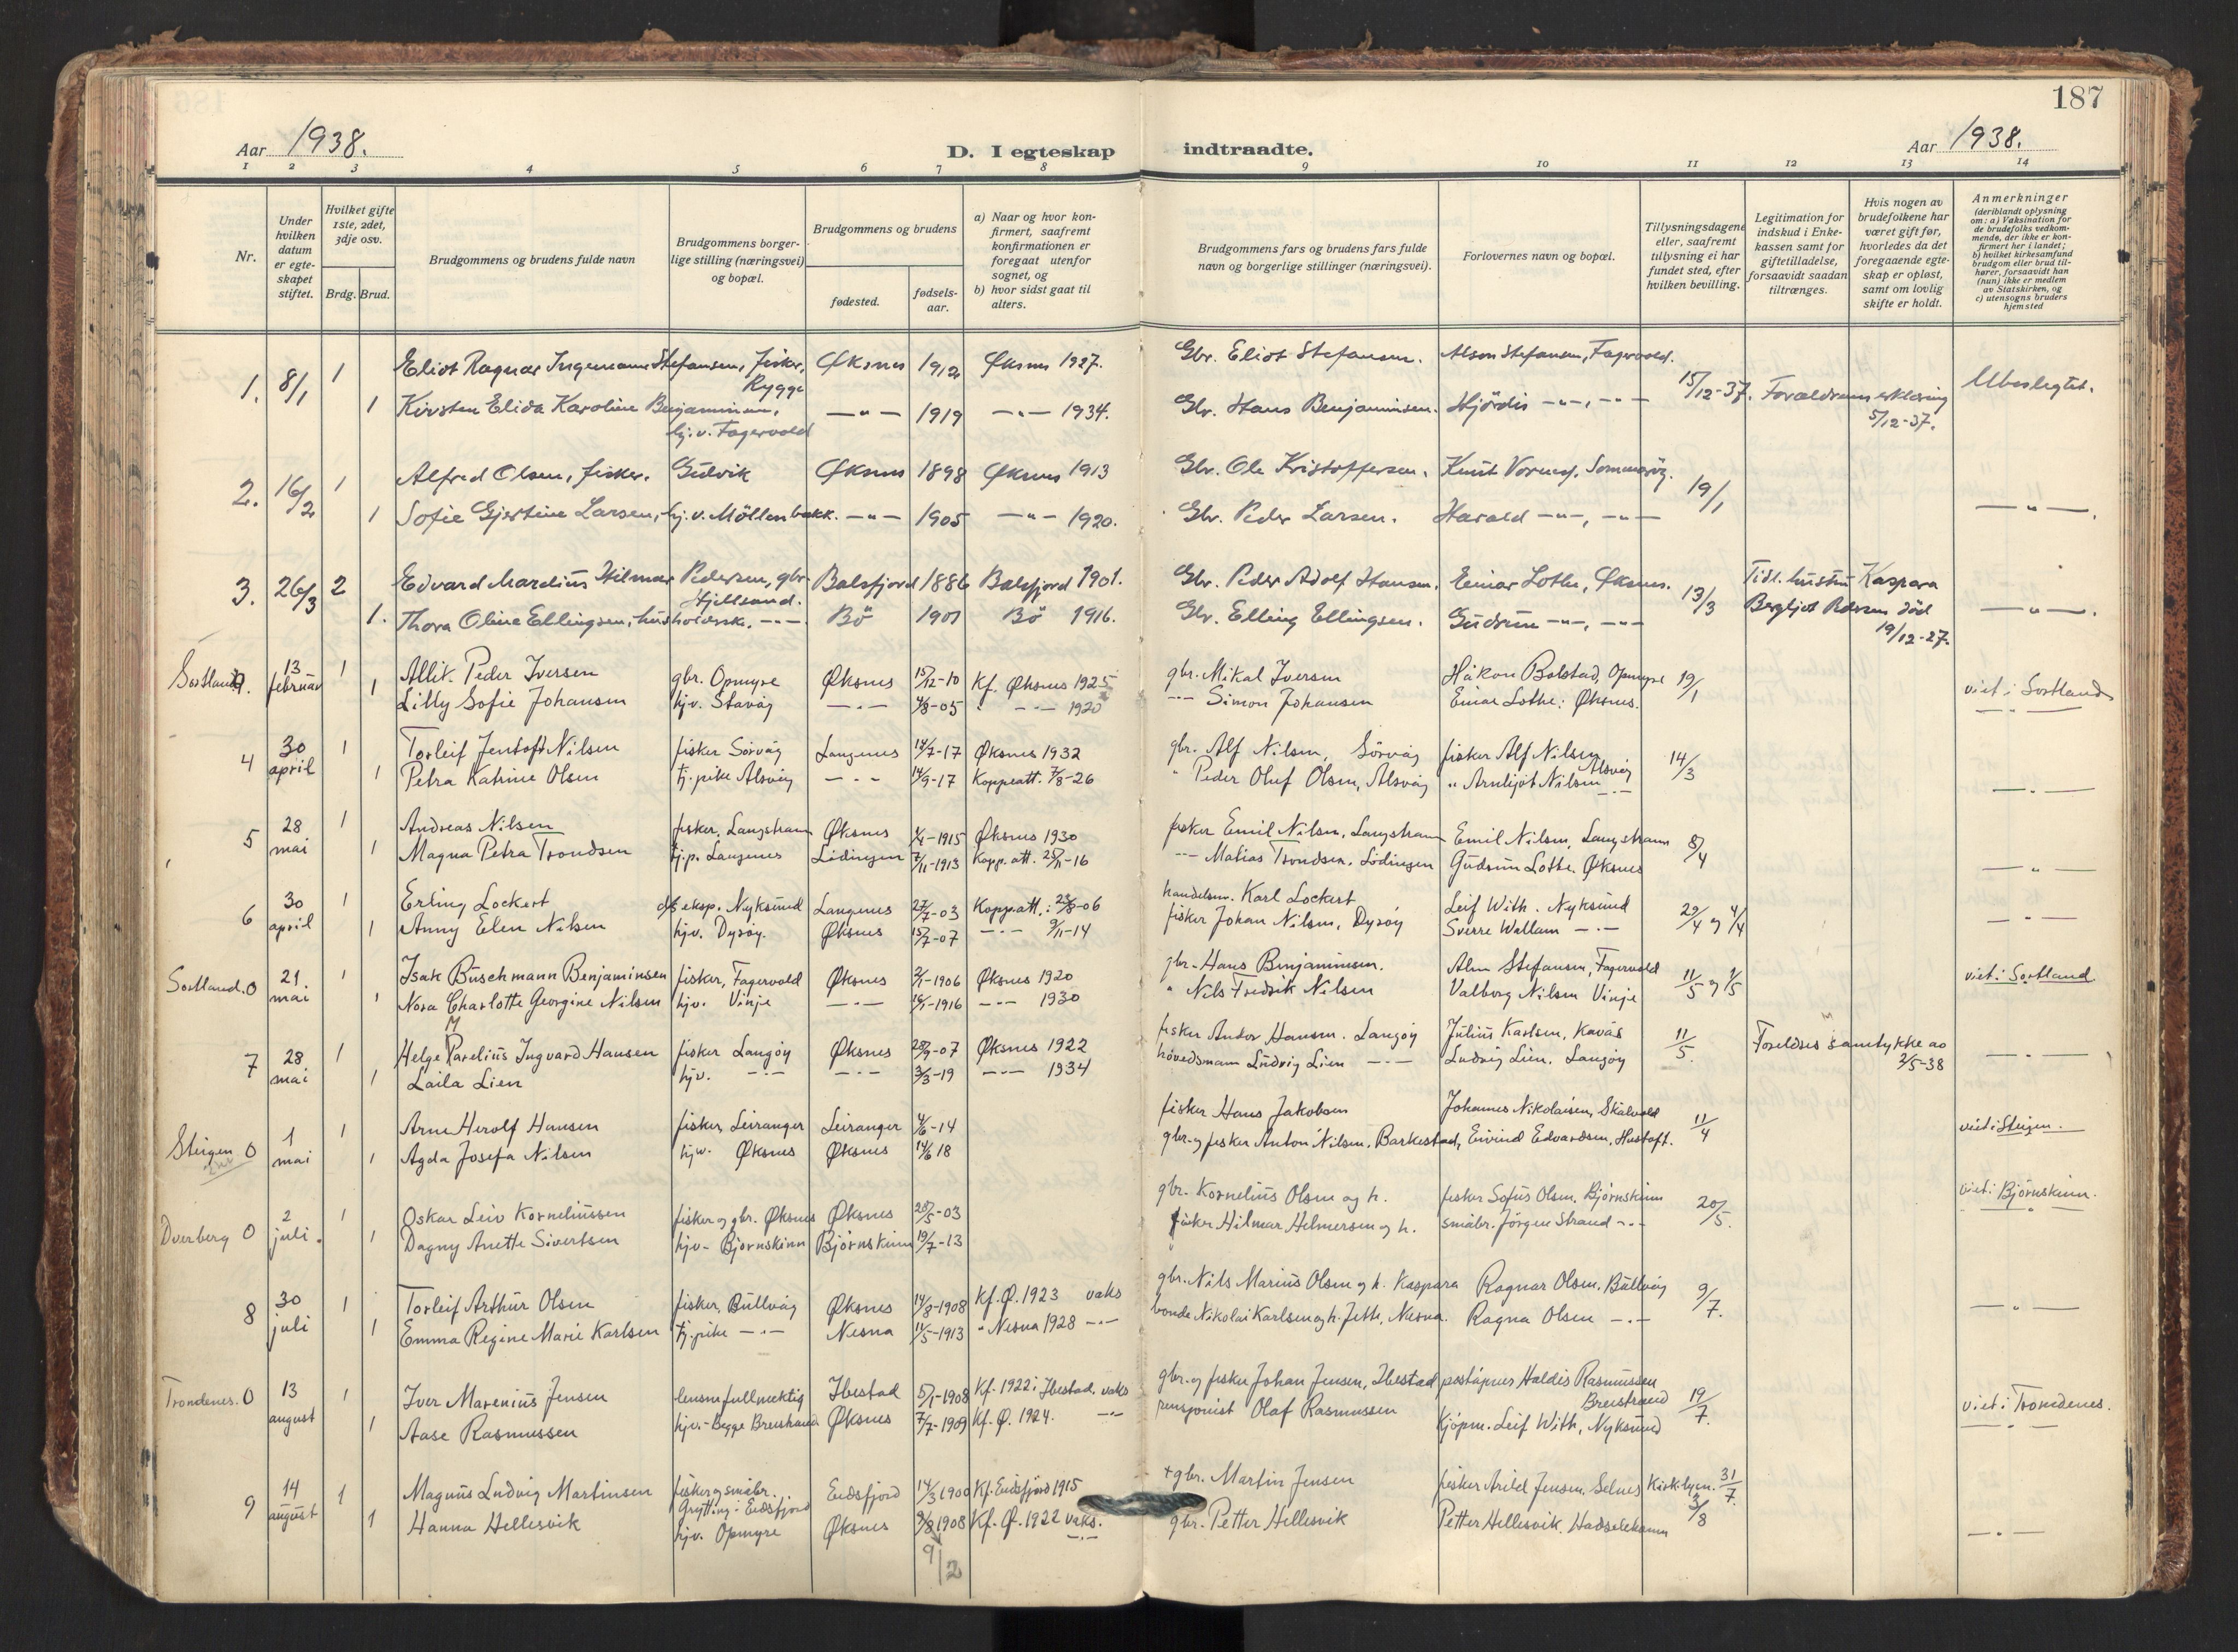 187
Aar 1938.
D. I egteskap indtraadte.
Aar 1938.
1 2 3 4 5 6 7 8 9 10 11 12 13 14
Nr.
Under hvilken datum er egteskapet stiftet.
Hvilket gifte 1ste, 2det, 3dje osv.
Brdg. Brud.
Brudgommens og brudens fulde navn
Brudgommens borgerlige stilling (næringsvei) og bopæl.
Brudgommens og brudens
fødested.
fødselsaar.
a) Naar og hvor konfirmert, saafremt konfirmationen er foregaat utenfor sognet, og
b) hvor sidst gaat til alters.
Brudgommens fars og brudens fars fulde navn og borgerlige stillinger (næringsvei).
Forlovernes navn og bopæl.
Tillysningsdagene eller, saafremt tillysning ei har fundet sted, efter hvilken bevilling.
Legitimation for indskud i Enkekassen samt for giftetilladelse, forsaavidt saadan tiltrænges.
Hvis nogen av brudefolkene har været gift før, hvorledes da det foregaaende egteskap er opløst, samt om lovlig skifte er holdt.
Anmerkninger
(deriblandt oplysning om: a) Vaksination for de brudefolks vedkommende, der ikke er konfirmert her i landet; b) hvilket kirkesamfund brudgom eller brud tilhører, forsaavidt han (hun) ikke er medlem av Statskirken, og c) utensogns bruders hjemsted
1. 8/1 1 Eliot Ragnar Ingemann Stefansen, fisker, Rygge Øksnes 1912 Øksnes 1927. Gbr. Eliot Stefansen. Alson Stefansen, Fagervold. 15/12-37. Forældrenes erklæring 5/12-37. Ubeslegtet.
1 Kirsten Elida Karoline Benjaminsen, hj.v. Fagervold —"— 1919 —"— 1934. Gbr. Hans Benjaminsen. Hjördis —"—, —"—
2. 16/2 1 Alfred Olsen, fisker. Gulvik Øksnes 1898 Øksnes 1913 Gbr. Ole Kristoffersen. Knut Sommarøy. 19/1 —"—.
1 Sofie Gjertine Larsen, hj.v. Möllenbakk. —"— 1905 —"— 1920. Gbr. Peder Larsen. Harald —"—, —"—
3. 26/3 2 Edvard Mardius Hilmar Pedersen, gbr. Hjellsand. Balsfjord 1886 Balsfjord 1901. Gbr. Peder Adolf Hansen. Einar Lothe, Øksnes. 13/3 Tidl. hustru Kaspara Bergljot Pedersen död 19/12-27. —"—.
1. Thora Oline Ellingsen, husholdersk. —"— Bö 1901 Bö 1916. Gbr. Elling Ellingsen. Gudrun —"—, —"—
Sortland 13 februar 1 Allik. Peder Iversen gbr. Opmyre Øksnes 15/12-10 Kf. Øksnes 1925 gbr. Mikal Iversen Håkon Bolstad, Opmyre 19/1 viet i Sortland
1 Lilly Sofie Johansen hjv. Stavøy —"— 4/8-05 —"— 1920 —"— Simon Johansen Einar Lothe: Øksnes.
4 30 april 1 Torleif Jentoft Nilsen fisker Sørvåg Langenes 14/7-17 Øksnes 1932 gbr. Alf Nilsen, Sørvåg fisker Alf Nilsen Alsvåg 14/3
1 Petra Katrine Olsen tj.pike Alsvåg —"— 14/9-17 Koppeatt. 7/8-26 " Peder Oluf Olsen, Alsvåg " Arnljot Nilsen —"— —"—
5 28 mai 1 Andreas Nilsen fisker, Langstrann Øksnes 1/4-1915 Øksnes 1930 fisker Emil Nilsen, Langstrann Emil Nilsen, Langstrann 8/4
1 Magna Petra Trondsen tj.p. Langenes Lødingen 7/11-1913 Kopp.att. 25/11-16 —"— Matias Trondsen. Lödingen Gudrun Lothe. Øksnes —"—
6 30 april 1 Erling Lockert d/s eksp. Nyksund Langenes 27/7-03 Kopp.att.: 23/8-06 handelsm. Karl Lockert Leif With. Nyksund 29/4 og 4/4 —"—
1 Anny Elen Nilsen hjv. Dyrøy. Øksnes 15/7-07 —"— 9/11-14 fisker Johan Nilsen, Dyrøy Sverre Wallann —"—
Sortland. 0 21. mai 1 Isak Buschmann Benjaminsen fisker, Fagervold Øksnes 2/1-1906 Øksnes 1920 gbr. Hans Benjaminsen. Alsen Stefansen, Fagervold 11/5 og 1/5 viet i Sortland
1 Nora Charlotte Georgine Nilsen hjv. Vinje —"— 15/1-1916 —"— 1930 " Nils Fredrik Nilsen Valborg Nilsen Vinje
7 28 mai 1 Helge Marelius Ingvard Hansen fisker Langøy Øksnes 28/9-07 Øksnes 1922 fisker Andor Hansen. Langøy Julius Karlsen, Kavås 11/5. Foreldres samtykke av 2/5-38 —"—
1 Laila Lien hjv. —"— —"— 3/3-19 —"— 1934 høvedsmann Ludvig Lien —"— Ludvig Lien. Langøy
Steigen 0 1 mai 1 Arne Herolf Hansen fisker, Leiranger Leiranger 4/6-14 fisker Hans Jakobsen Johannes Nikolaisen, Skålvold 11/4 viet i Steigen.
1 Agda Josefa Nilsen hjv. Øksnes Øksnes 14/6 18 gbr. og fisker Anton Nilsen, Barkestad, Eivind Edvardsen, Hustoft.
Dverberg 0 2 juli. 1 Oskar Leiv Korneliussen fisker og gbr. Øksnes Øksnes 28/5-03 gbr. Kornelius Olsen og h. fisker Sofus Olsen. Bjørnskinn 20/5. viet i Bjørnskinn.
1 Dagny Anette Sivertsen hjv- Bjørnskinn Bjørnskinn 19/7-13 fisker Hilmar Helmersen og h. småbr. Jørgen Strand —"—
8 30 juli 1 Torleif Arthur Olsen fisker, Bullvåg Øksnes 14/8-1908 Kf. Ø. 1923 vaks gbr. Nils Marius Olsen og h. Kaspara Ragnar Olsen. Bullvåg 9/7. —"—
1 Emma Regine Marie Karlsen tj.pike —"— Nesna 11/5-1913 " Nesna 1928 —"— bonde Nikolai Karlsen og h. Jette, Nesna. Ragna Olsen —"—
Trondenes. 0 13 august 1 Iver Marenius Jensen lensm.fullmektig Ibestad 5/1-1908 Kf. 1922 i Ibestad. vaks gbr. og fisker Johan Jensen, Ibestad poståpner Haldis Rasmussen Breistrand 19/7. viet i Trondenes.
1 Aase Rasmussen hjv.- Begge Breistrand Øksnes 7/7-1909 Kf. Ø. 1924. —"— pensjonist Olaf Rasmussen Kjøpm. Leif With, Nyksund
9 14 august 1 Magnus Ludvig Martinsen fisker og småbr. Grytting i Eidsfjord Eidsfjord 14/3 1900 Kf. Eidsfjord 1915 + gbr. Martin Jensen fisker Arild Jensen, Selnes Kirk.lysn. 31/7. 3/8
1 Hanna Hellesvik hjv. Opmyre Øksnes 9/8 1908 Kf. Ø. 1922 vaks. —"— gbr. Petter Hellesvik Petter Hellesvik. Hadselskann —"—
9/2